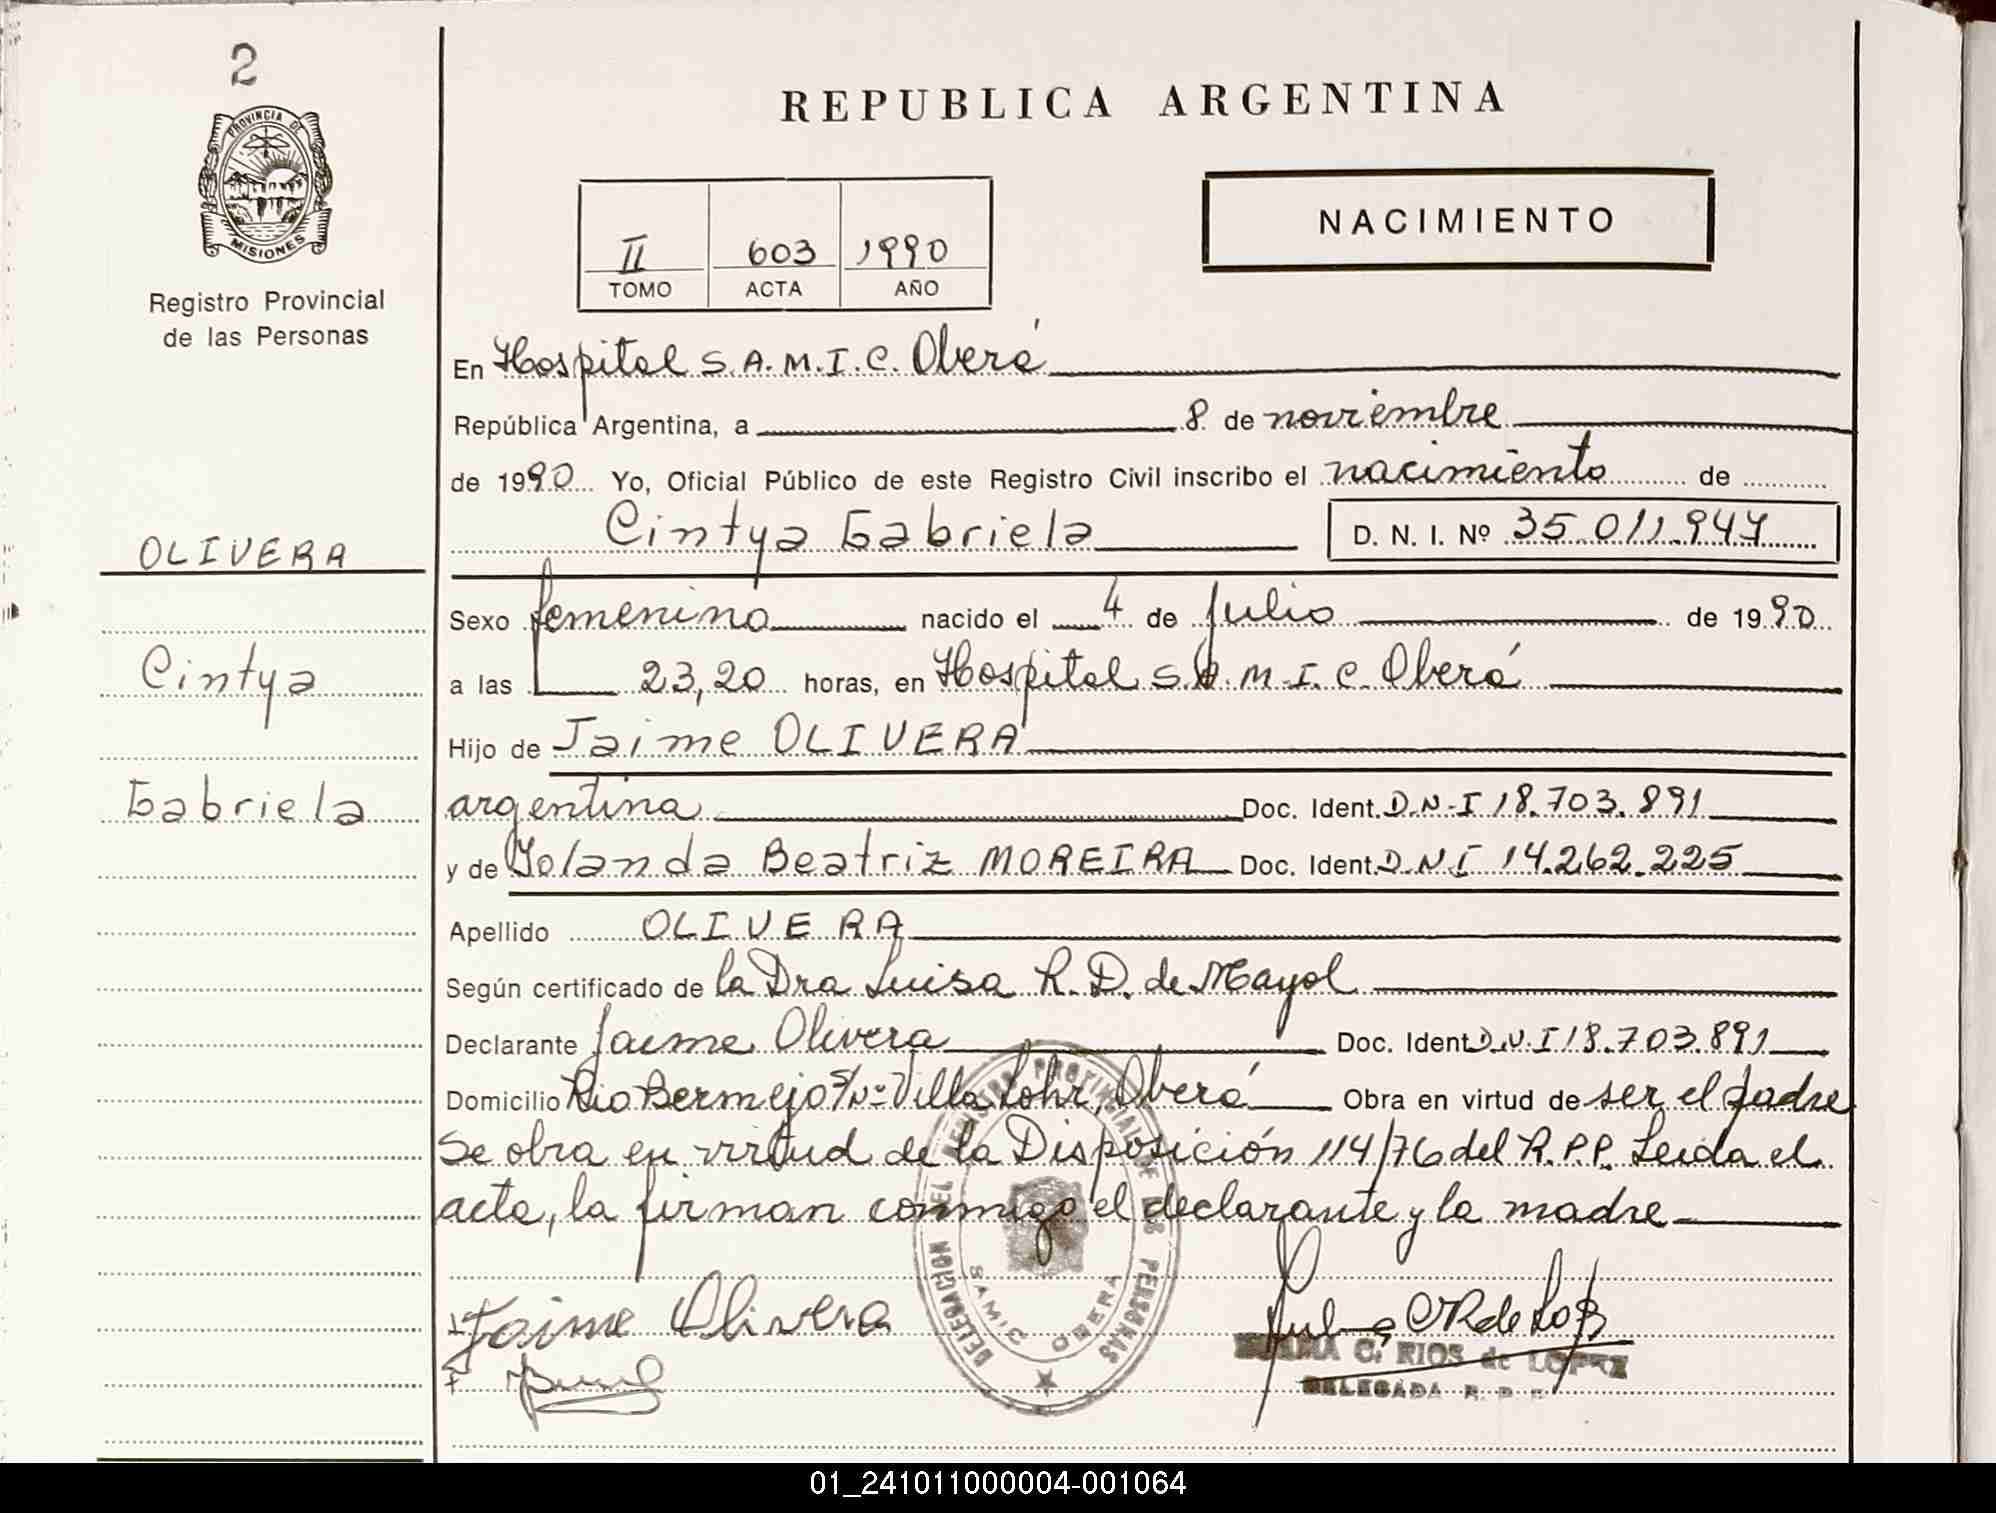 2
PROVINCIA DE
MISIONES
Registro Provincial
de las Personas
OLIVERA
Cintya
Gabriela
REPUBLICA ARGENTINA
II 603 1990
TOMO ACTA AÑO
NACIMIENTO
En Hospital S.A.M.I.C. Oberá
República Argentina, a 8 de noviembre
de 1990 Yo, Oficial Público de este Registro Civil inscribo el nacimiento de
Cintya Gabriela D. N. I. Nº 35.011.947
Sexo femenino nacido el 4 de Julio de 1990
a las 23,20 horas, en Hospital S.A.M.I.C. Oberá
Hijo de Jaime OLIVERA
argentina Doc. Ident. D.N.I 18.703.891
y de Yolanda Beatriz MOREIRA Doc. Ident. D.N.I 14.262.225
Apellido OLIVERA
Según certificado de la Dra Luisa R. D. de Mayol
Declarante Jaime Olivera Doc. Ident D.N.I 18.703.891
Domicilio Rio Bermejo S/Nº Villa Lohr, Oberá Obra en virtud de ser el padre
Se obra en virtud de la Disposición 114/76 del R.P.P. Leida el
acta, la firman conmigo el declarante y la madre
Jaime Olivera
DELEGACION DEL REGISTRO PROVINCIAL DE LAS PERSONAS
SAMIC OBERA
C. RIOS de LOPEZ
DELEGADA R. P. P.
01_241011000004-001064